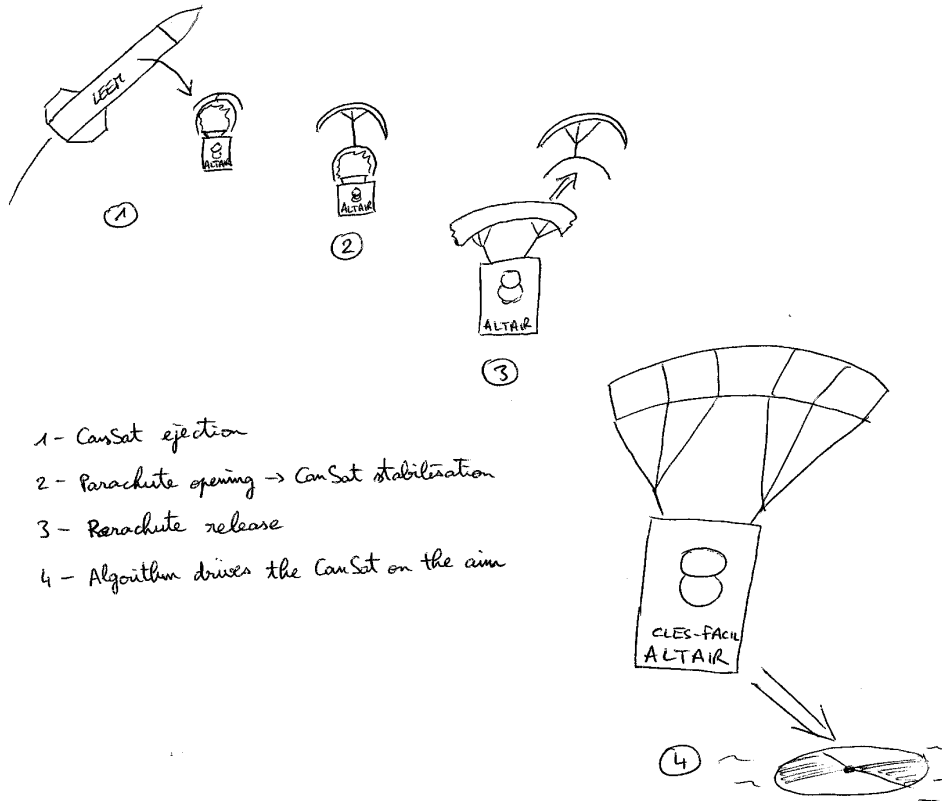 LEEM
ALTAIR
1
ALTAIR
2
ALTAIR
3
1 - CanSat ejection
2 - Parachute opening -> CanSat stabilisation
3 - Parachute release
4 - Algorithm drives the CanSat on the aim
CLES-FACIL
ALTAIR
4